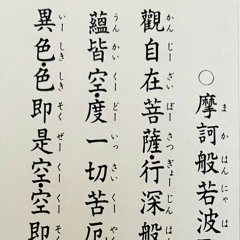 ま か はん にゃ は
○摩訶般若波
かん じー ざい ぼー さつ ぎょー じん はん
觀自在菩薩・行深般
うん かい くー どー いっ さい くー やく
蘊皆空・度一切苦厄
いー しき しき そく ぜー くー くー そく
異色・色即是空・空即